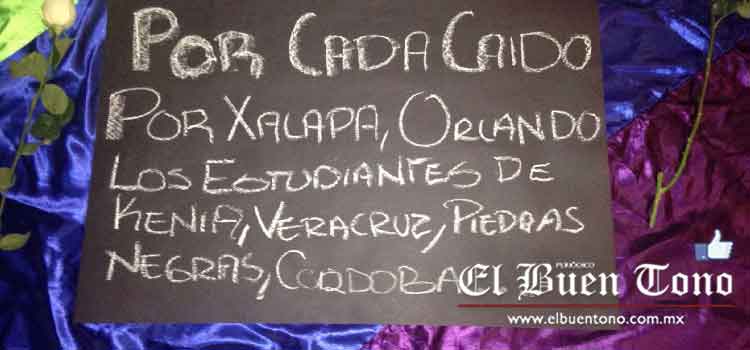 POR CADA CAIDO
POR XALAPA, ORLANDO
LOS ESTUDIANTES DE
KENIA, VERACRUZ, PIEDRAS
NEGRAS, CORDOBA
PERIÓDICO
El Buen Tono
www.elbuentono.com.mx